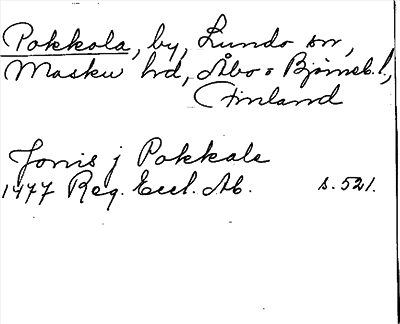 Pokkola, by, Lundo sn,
Masku hd, Åbo o Björneb. l.,
Finland
Jonis j Pokkala
1477 Reg. Eccl. Ab. s. 521.